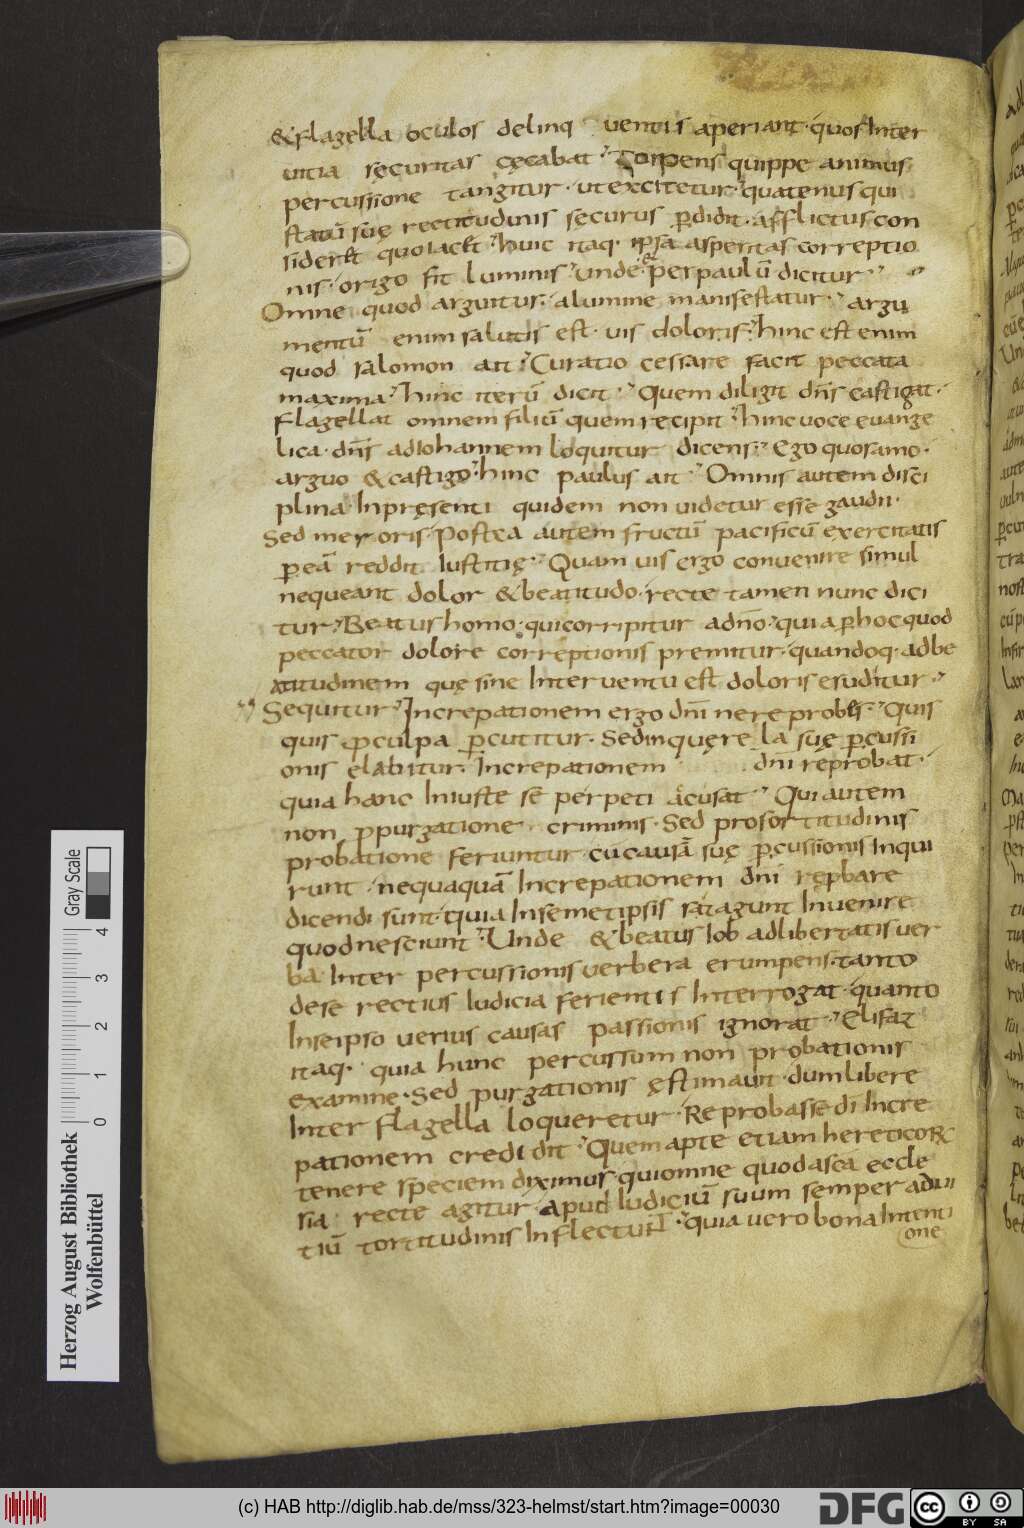 &flagella oculos delinq uentis aperiant· quos Inter
uitia sęcuritas cęcabat· Torpens quippe animus
percussione tangitur· utexcitetur· quatenus qui
statū suę rectitudinis securus p̱didit· afflictus con
sideret quoiacet· huic itaq· ipsa asperitas correptio
nis· origo fit luminis· unde· & per paulū dicitur·
Omne quod arguitur· alumine manifestatur· argu
mentū enim salutis est· uis doloris· hinc est enim
quod salomon ait· Curatio cessare facit peccata
maxima· hinc iterū dicit· Quem diligit dn̄s castigat·
flagellat omnem filiū quem recipit· hinc uoce euange
lica· dn̄s adIohannem loquitur dicens· Ego quosamo·
arguo & castigo· hinc paulus ait· Omnis autem disci
plina Inpręsenti quidem non uidetur esse gaudii·
Sed meroris· Postea autem fructū pacificū exercitatis
p̱eā reddit Iustitię· Quam uis ergo conuenire simul
nequeant dolor & beatitudo· recte tamen nunc dici
tur· Beatus homo· quicorripitur adn̄o· quia p̱hoc quod
peccator dolore correptionis premitur· quandoq· adbe
atitudinem quę sine Interuentu est doloris eruditur·
Sequitur· Increpationem ergo dn̄i nereprobes· Quis
quis ꝓculpa p̱cutitur· Sedinquęre la suę p̱cussi
onis elabitur· Increpationem dn̄i reprobat·
quia hanc Iniuste se perpeti acusat· Qui autem
non ꝓpurgatione criminis· Sed profortitudinis
probatione feriuntur cū causā suę p̱cussionis Inqui
runt· nequaquā Increpationem dn̄i rep̱bare
dicendi sunt· quia Insemetipsis satagunt Inuenire
quodnesciunt· Unde & beatus Iob adlibertatis uer
ba· Inter percussionis uerbera erumpens· tanto
dese rectius Iudicia ferientis Interrogat· quanto
Inseipso uerius causas passionis ignorat· Elifaz
itaq· quia hunc percussum non probationis
examine· Sed purgationis ęstimauit· dum libere
Inter flagella loqueretur· Reprobasse di Incre
pationem credidit· Quem apte etiam hereticoꝝ
tenere speciem diximus· quiomne quodascā eccle
sia recte agitur· Apud Iudiciū suum semper adui
tiū tortitudinis Inflectunt· quia uero bona Intenti
one
Gray Scale
0 1 2 3 4
Herzog August Bibliothek
Wolfenbüttel
(c) HAB http://diglib.hab.de/mss/323-helmst/start.htm?image=00030
DFG
cc BY SA